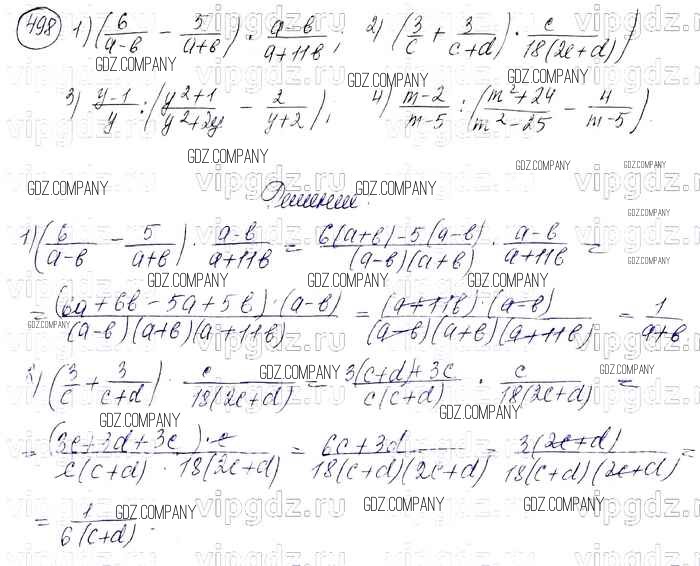 498 1) (6/(a-b) - 5/(a+b)) · (a-b)/(a+11b); 2) (3/c + 3/(c+d)) · c/(18(2c+d));
3) (y-1)/y : ((y²+1)/(y²+2y) - 2/(y+2)); 4) (m-2)/(m-5) : ((m²+24)/(m²-25) - 4/(m-5)).
Решение.
1) (6/(a-b) - 5/(a+b)) · (a-b)/(a+11b) = (6(a+b)-5(a-b))/((a-b)(a+b)) · (a-b)/(a+11b) =
= ((6a+6b-5a+5b)·(a-b))/((a-b)(a+b)(a+11b)) = ((a+11b)·(a-b))/((a-b)(a+b)(a+11b)) = 1/(a+b)
2) (3/c + 3/(c+d)) · c/(18(2c+d)) = (3(c+d)+3c)/(c(c+d)) · c/(18(2c+d)) =
= ((3c+3d+3c)·c)/(c(c+d)·18(2c+d)) = (6c+3d)/(18(c+d)(2c+d)) = (3(2c+d))/(18(c+d)(2c+d)) =
= 1/(6(c+d)).
GDZ.COMPANY
vipgdz.ru